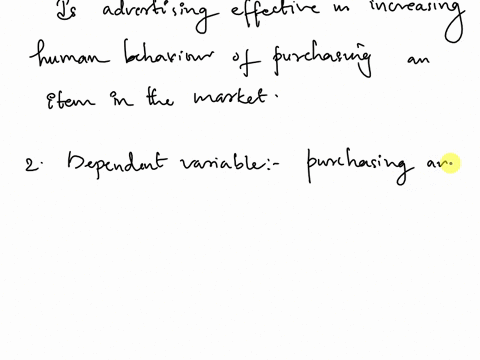 Is advertising effective in increasing
human behaviour of purchasing an
item in the market.
2. Dependent variable:- purchasing an